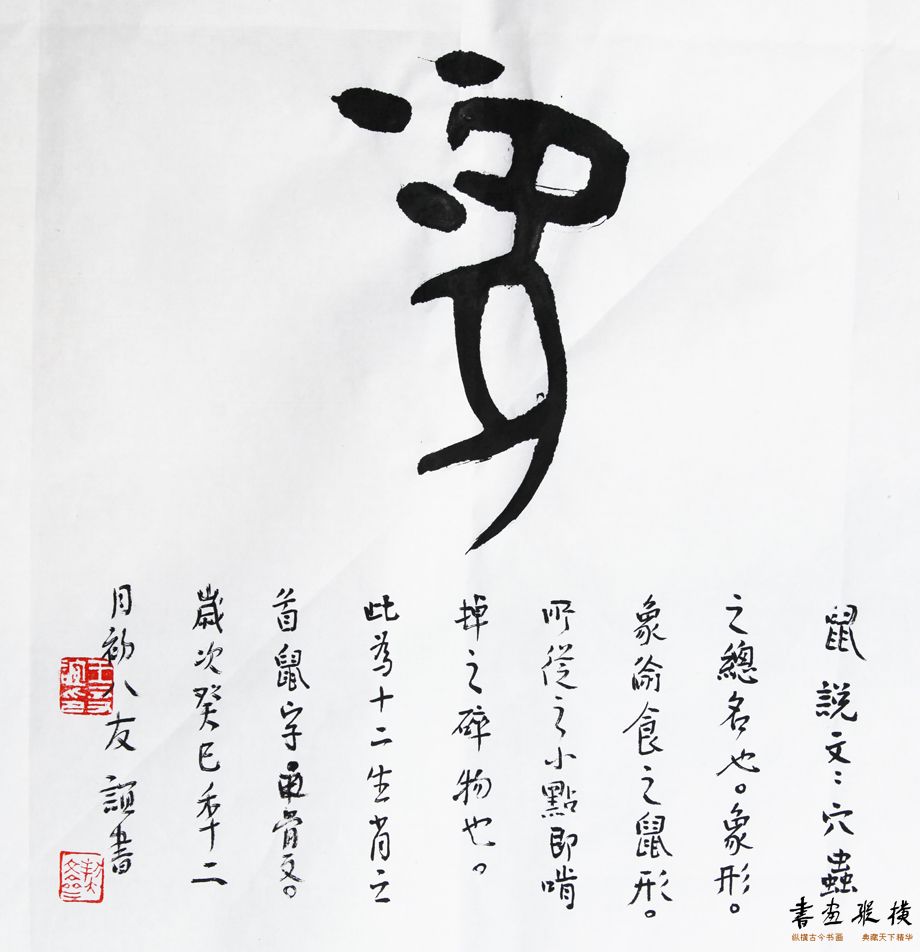 鼠
鼠 說文：穴蟲
之總名也。象形。
象偷食之鼠形。
所從之小點即啃
掉之碎物也。
此為十二生肖之
首鼠字甲骨文。
歲次癸巳年十二
月初八友誼書
王友誼印
書畫縱橫
纵横古今书画 典藏天下精华